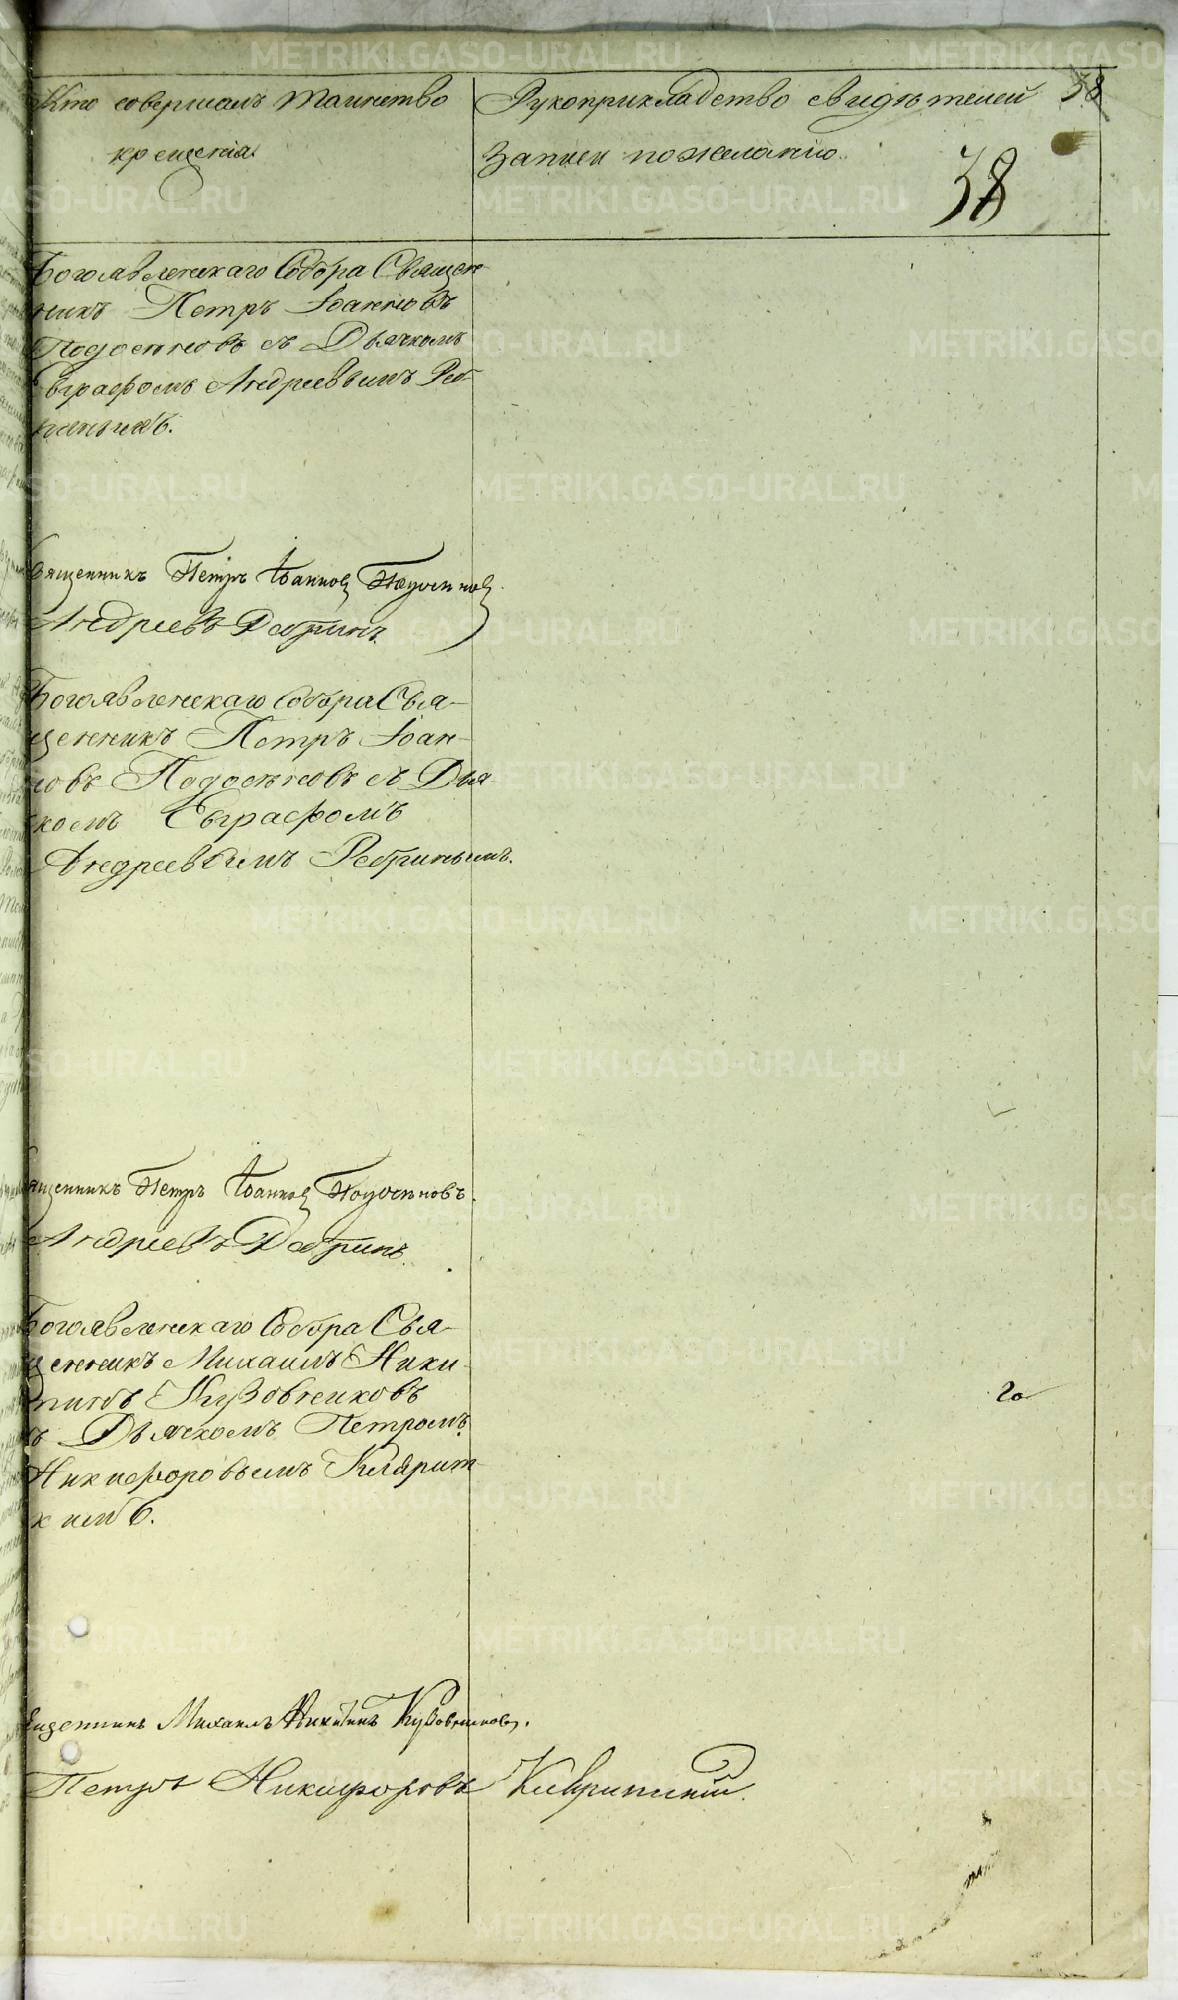 Кто совершалъ таинство
крещенія.
Рукоприкладство свидѣтелей
записи по желанію.
38
38
Богоявленскаго Собора Священ-
никъ Петръ Іоанновъ
съ Дьячкомъ
Евграфомъ Андреевымъ Реб-
риныхъ.
Священникъ Петръ Іоанновъ
Андреевъ Ребринъ.
Богоявленскаго Собора Свя-
щенникъ Петръ Іоан-
новъ съ Дья-
комъ Евграфомъ
Андреевымъ Ребринымъ.
Священникъ Петръ Іоанновъ
Андреевъ Ребринъ.
Богоявленскаго Собора Свя-
щенникъ Михаилъ Ники-
тинъ Кузовниковъ
съ Дьячкомъ Петромъ
Никифоровымъ
кимъ.
Священникъ Михаилъ Никитинъ Кузовниковъ.
Петръ Никифоровъ
METRIKI.GASO-URAL.RU